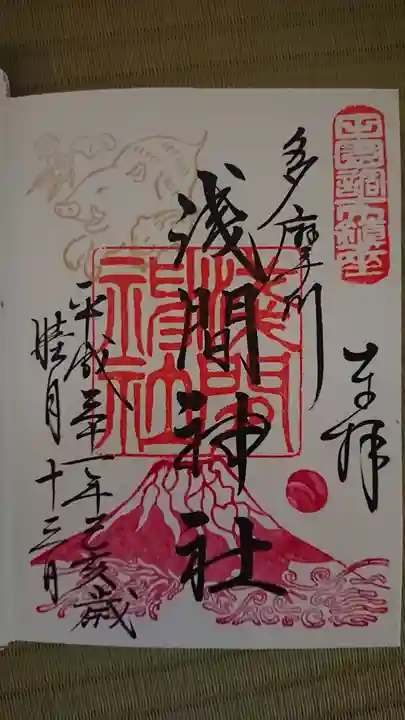 奉拝
多摩川
浅間神社
浅間神社
平成三十一年己亥歳
睦月十三日